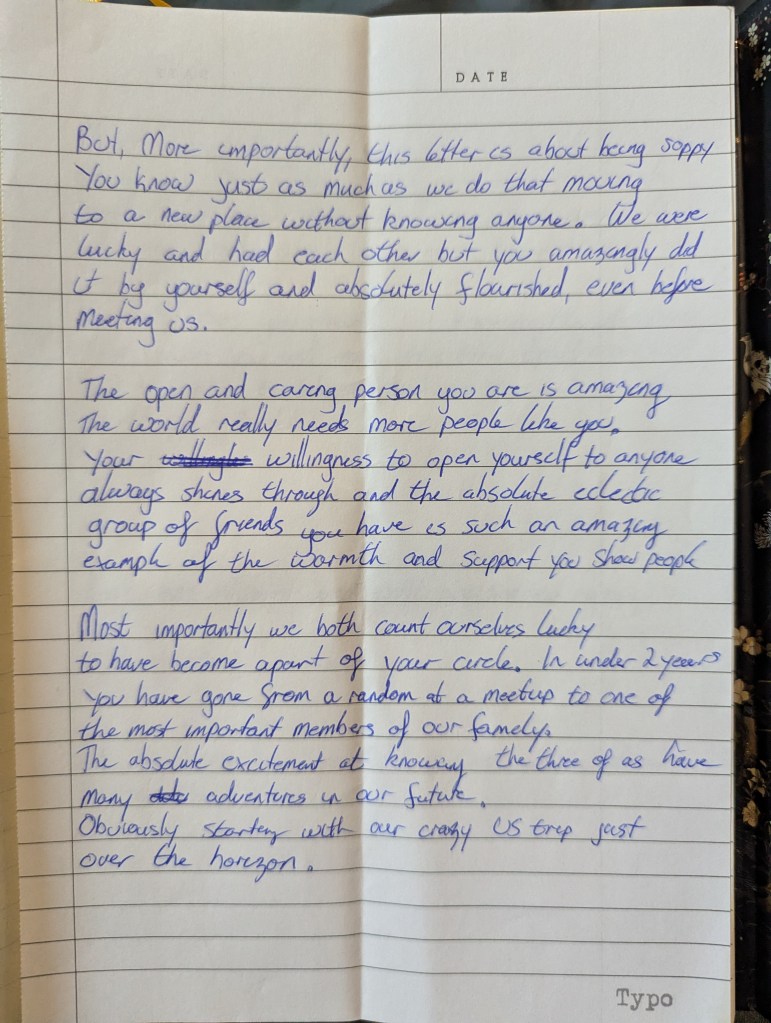 DATE
But, More importantly, this letter is about being soppy
You know just as much as we do that moving
to a new place without knowing anyone. We were
lucky and had each other but you amazingly did
it by yourself and absolutely flourished, even before
Meeting us.
The open and caring person you are is amazing
The world really needs more people like you.
Your willingness to open yourself to anyone
always shines through and the absolute eclectic
group of friends you have is such an amazing
example of the warmth and support you show people
Most importantly we both count ourselves lucky
to have become apart of your circle. In under 2 years
you have gone from a random at a meetup to one of
the most important members of our family.
The absolute excitement at knowing the three of us have
many adventures in our future.
Obviously starting with our crazy US trip just
over the horizon.
Typo